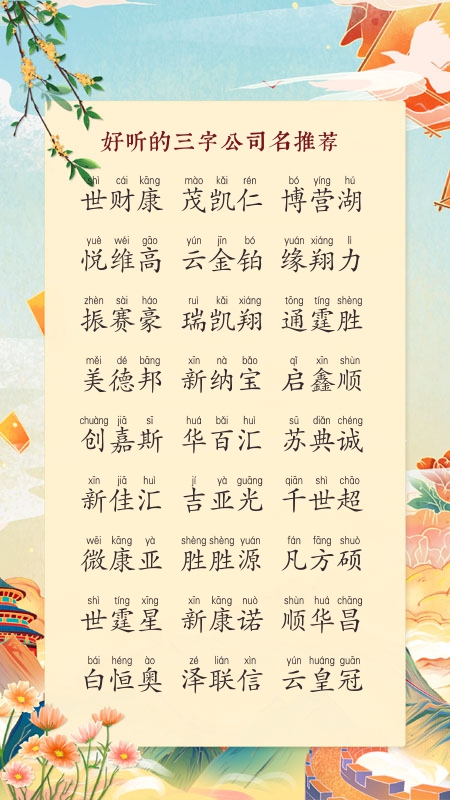 好听的三字公司名推荐
shì cái kāng mào kǎi rén bó yíng hú
世财康 茂凯仁 博营湖
yuè wéi gāo yún jīn bó yuán xiáng lì
悦维高 云金铂 缘翔力
zhèn sài háo ruì kǎi xiáng tōng tíng shèng
振赛豪 瑞凯翔 通霆胜
měi dé bāng xīn nà bǎo qǐ xīn shùn
美德邦 新纳宝 启鑫顺
chuàng jiā sī huá bǎi huì sū diǎn chéng
创嘉斯 华百汇 苏典诚
xīn jiā huì jí yà guāng qiān shì chāo
新佳汇 吉亚光 千世超
wēi kāng yà shèng shèng yuán fán fāng shuò
微康亚 胜胜源 凡方硕
shì tíng xīng xīn kāng nuò shùn huá chāng
世霆星 新康诺 顺华昌
bái héng ào zé lián xìn yún huáng guān
白恒奥 泽联信 云皇冠